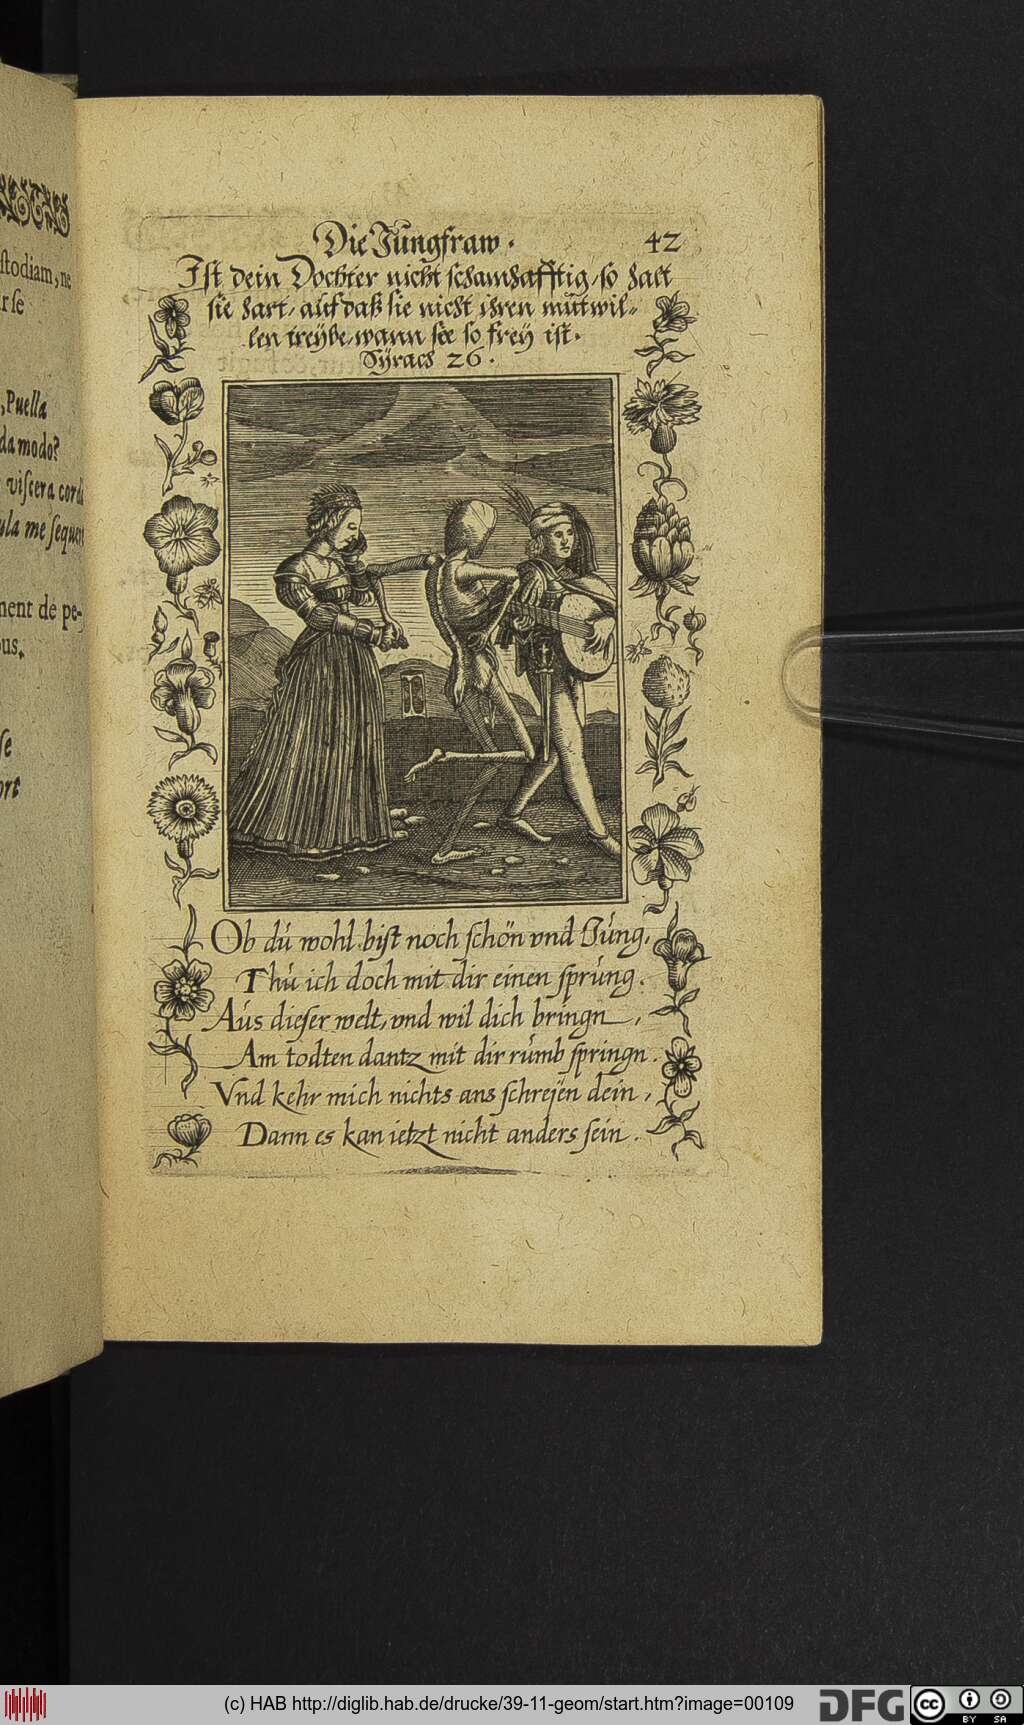 ſtodiam, ne
r ſe
, Puella
da modo?
viſcera cord
ula me ſequer
ment de pe-
ous.
ſe
ort
Die Jungfraw.
42
Iſt dein Dochter nicht ſchamhafftig, ſo halt
ſie hart, auf daß ſie nicht ihren mutwil-
len treÿbe, wann ſie ſo freÿ iſt.
Sÿrach 26.
Ob dú wohl biſt noch ſchön vnd Júng,
Thú ich doch mit dir einen ſprúng.
Aús dieſer welt, vnd wil dich bringn,
Am todten dantz mit dir rúmb ſpringn.
Vnd kehr mich nichts ans ſchreÿen dein,
Dann es kan ietzt nicht anders ſein.
(c) HAB http://diglib.hab.de/drucke/39-11-geom/start.htm?image=00109
DFG
cc
BY SA